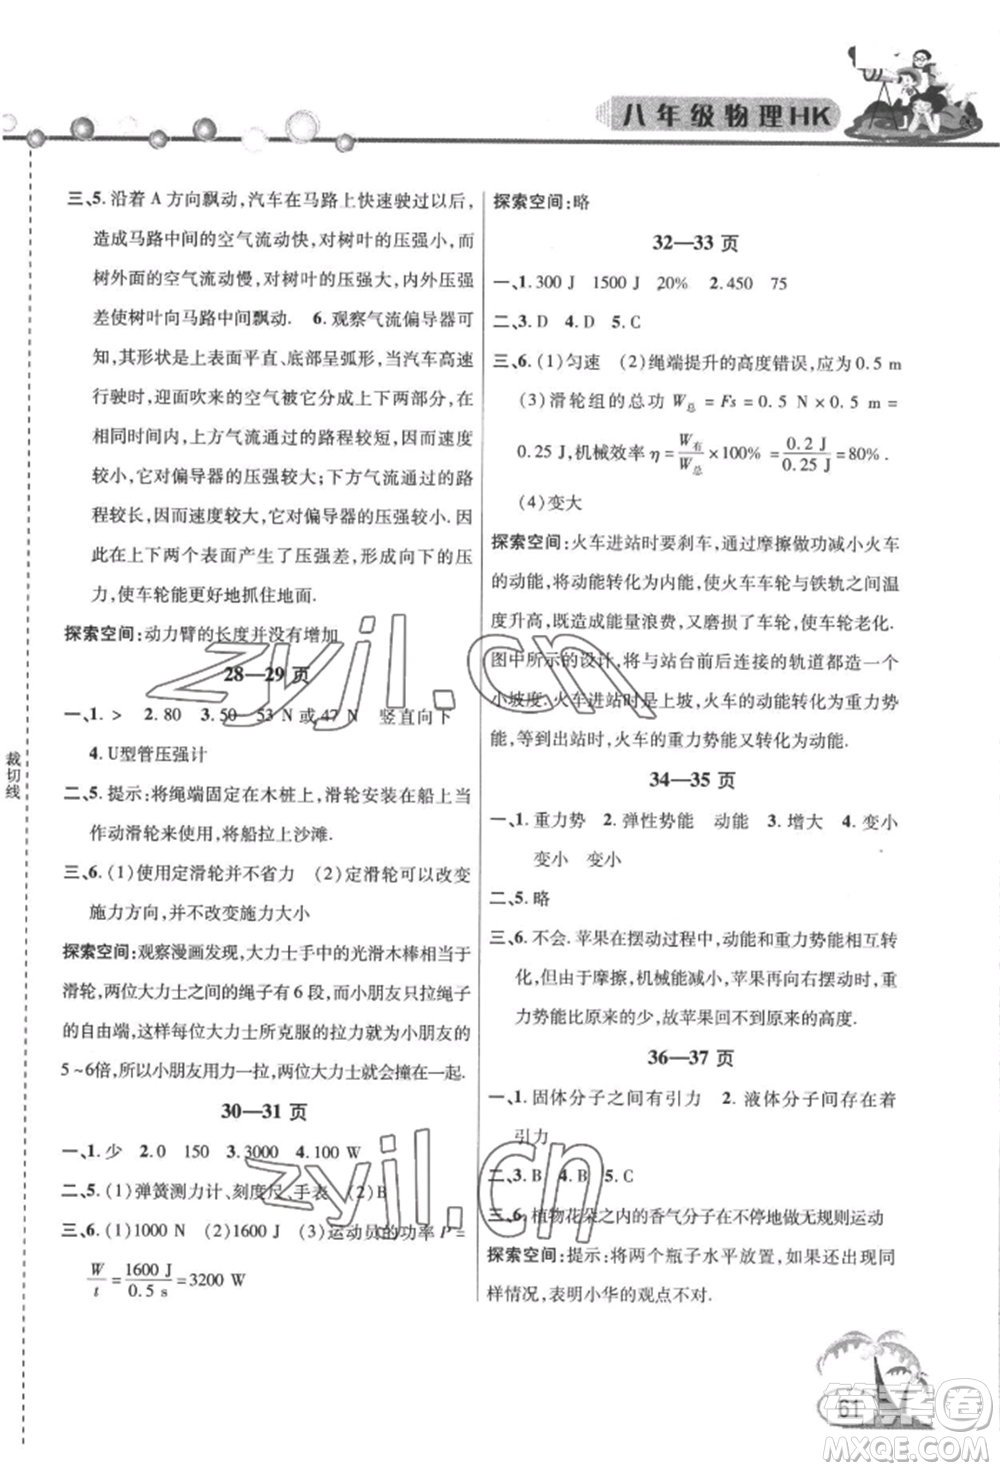 八年级物理HK
三、5. 沿着 A 方向飘动,汽车在马路上快速驶过以后,
造成马路中间的空气流动快,对树叶的压强小,而
树外面的空气流动慢,对树叶的压强大,内外的压强
差使树叶向马路中间飘动. 6. 观察气流偏导器可
知,其形状是上表面平直、底部呈弧形,当汽车高速
行驶时,迎面吹来的空气被它分成上下两部分,在
相同时间里,上方气流通过的路程较短,因而速度
较小,它对偏导器的压强较大;下方气流通过的路
程较长,因而速度较大,它对偏导器的压强较小. 因
此在上下两个表面产生了压强差,形成向下的压
力,使车轮能更好地抓住地面.
探索空间:动力臂的长度并没有增加
28—29 页
一、1. > 2. 80 3. 50 53 N 或 47 N 竖直向下
4. U型管压强计
二、5. 提示:将绳端固定在木桩上,滑轮安装在船上当
作动滑轮来使用,将船拉上沙滩.
三、6. (1)使用定滑轮并不省力 (2)定滑轮可以改变
施力方向,并不改变施力大小
探索空间:观察漫画发现,大力士手中的光滑木棒相当于
滑轮,两位大力士之间的绳子有 6 段,而小朋友只拉绳子
的自由端,这样每位大力士所克服的拉力就为小朋友的
5～6倍,所以小朋友用力一拉,两位大力士就会撞在一起.
30—31 页
一、1. 少 2. 0 150 3. 3000 4. 100 W
二、5. (1)弹簧测力计、刻度尺、手表 (2)B
三、6. (1)1000 N (2)1600 J (3)运动员的功率 P =
W/t = 1600 J/0.5 s = 3200 W
探索空间:略
32—33 页
一、1. 300 J 1500 J 20% 2. 450 75
二、3. D 4. D 5. C
三、6. (1)匀速 (2)绳端提升的高度错误,应为 0.5 m
(3)滑轮组的总功 W总 = Fs = 0.5 N × 0.5 m =
0.25 J,机械效率 η = W有/W总 × 100% = 0.2 J/0.25 J = 80% .
(4)变大
探索空间:火车进站时要刹车,通过摩擦做功减小火车
的动能,将动能转化为内能,使火车车轮与铁轨之间温
度升高,造成能量浪费,又磨损了车轮,使车轮老化.
图中所示的设计,将与站台前后连接的轨道处建造一个
小坡度.火车进站时是上坡,火车的动能转化为重力势
能,等到出站时,火车的重力势能又转化为动能.
34—35 页
一、1. 重力势 2. 弹性势能 动能 3. 增大 4. 变小
变小 变小
二、5. 略
三、6. 不会. 苹果在摆动过程中,动能和重力势能相互转
化,但由于摩擦,机械能减小,苹果再向右摆动时,重
力势能比原来的少,故苹果回不到原来的高度.
36—37 页
一、1. 固体分子之间有引力 2. 液体分子间存在着
引力
二、3. B 4. B 5. C
三、6. 植物花朵之内的香气分子在不停地做无规则运动
探索空间:提示:将两个瓶子水平放置,如果还出现同
样情况,表明小华的观点不对.
裁切线
61
zyjl.cn
zyjl.cn
答案卷
MXQE.COM